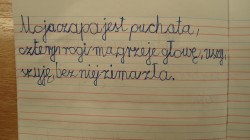 Moja czapa jest puchata,
cztery rogi ma, grzeje głowę, uszy,
szyję, bez niej zima zła.